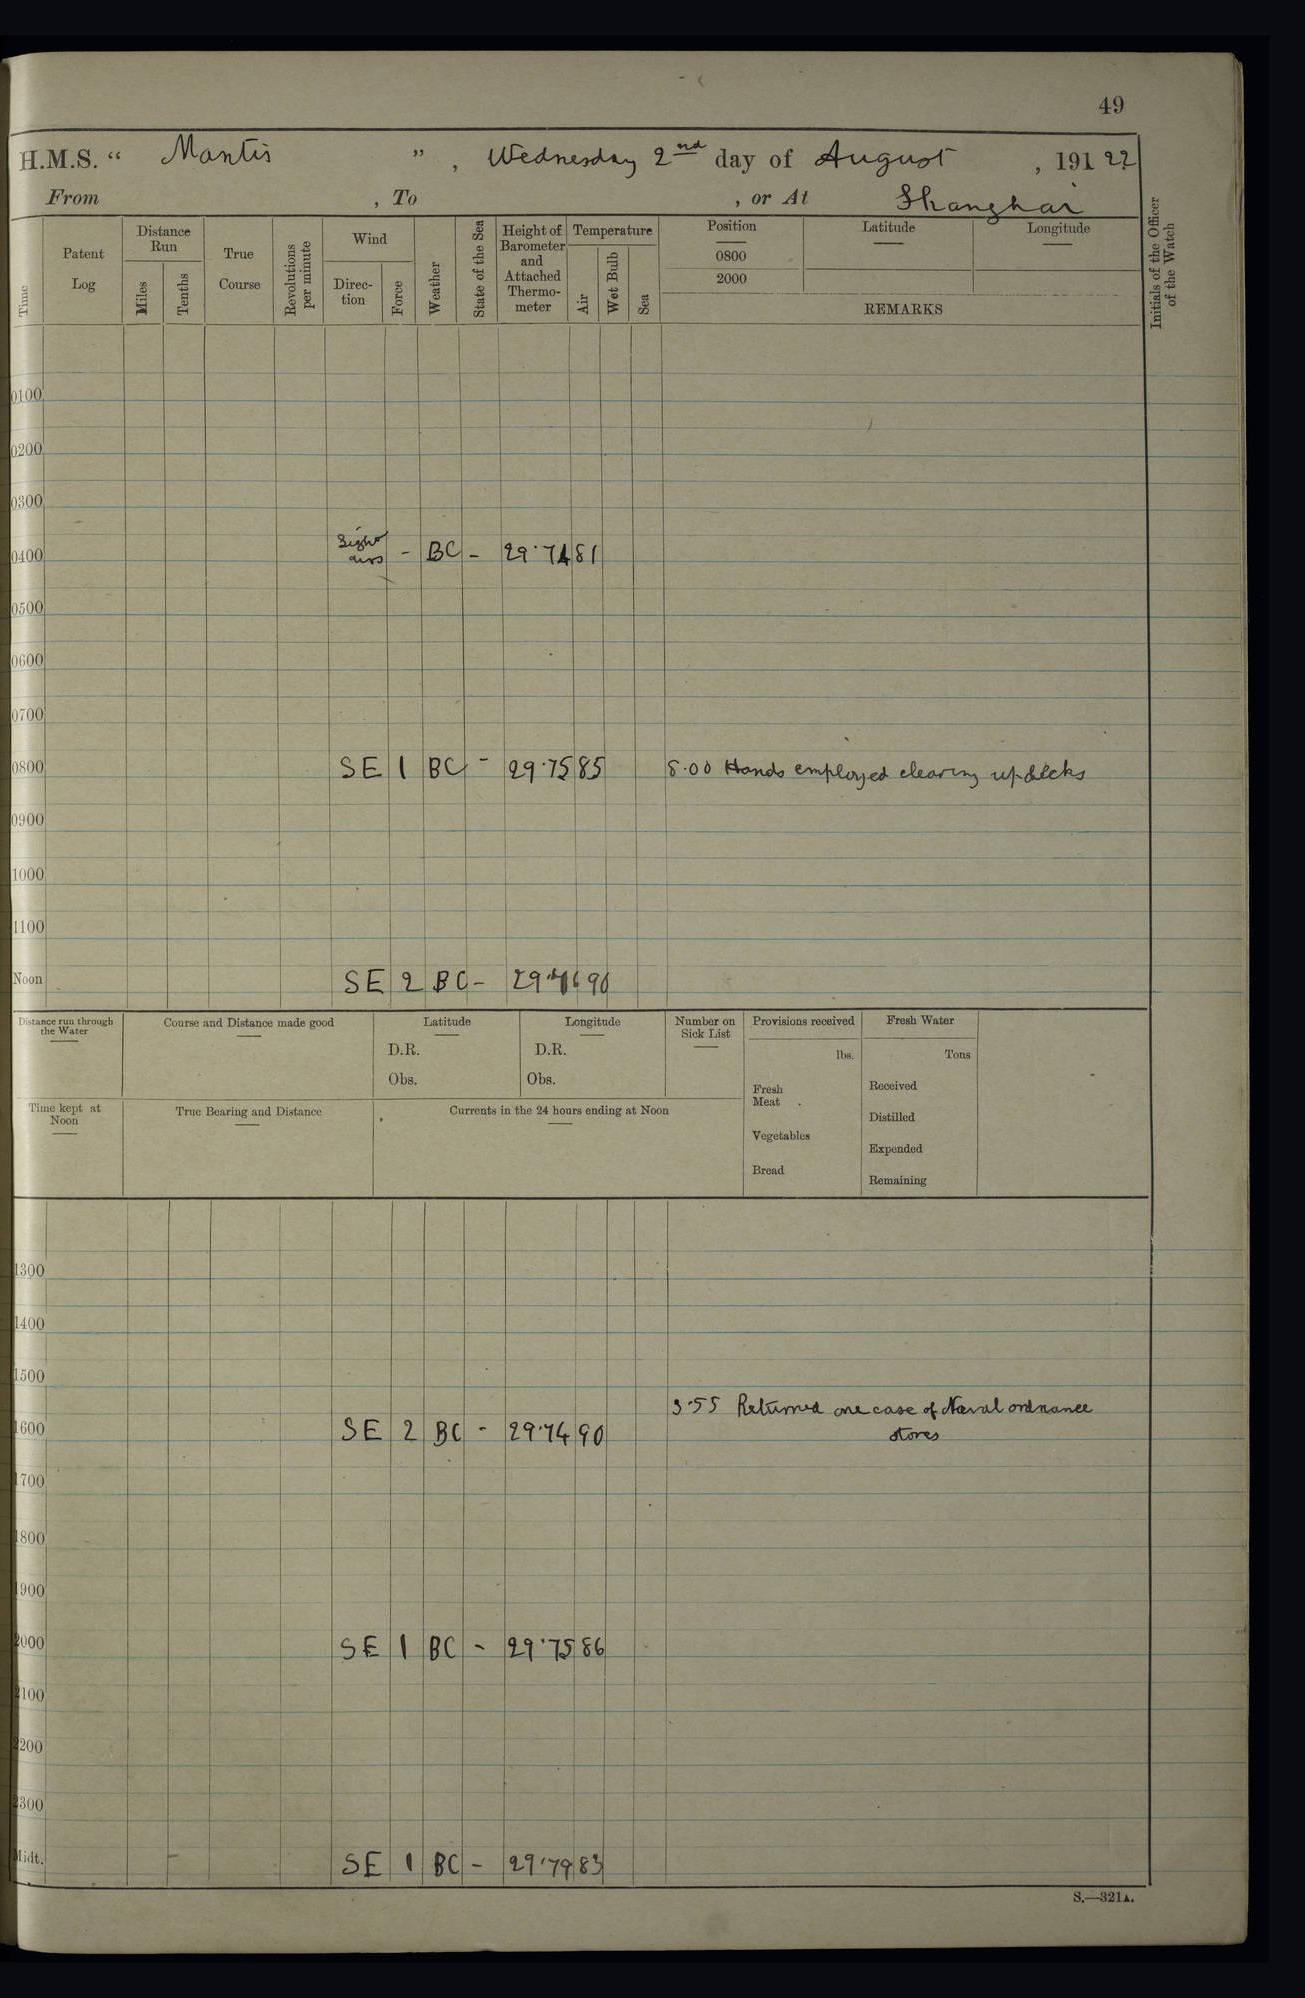 49
H.M.S. “ Mantis ” , Wednesday 2nd day of August , 191 22
From , To , or At Shanghai
Time
Patent Log
Distance Run
Miles
Tenths
True Course
Revolutions per minute
Wind
Direc-tion
Force
Weather
State of the Sea
Height of Barometer and Attached Thermo-meter
Temperature
Air
Wet Bulb
Sea
Position
0800
2000
Latitude
Longitude
REMARKS
Initials of the Officer of the Watch
0100
0200
0300
0400 Light airs - BC - 29.74 81
0500
0600
0700
0800 SE 1 BC - 29.75 85 8.00 Hands employed clearing up decks
0900
1000
1100
Noon SE 2 BC - 90
Distance run through the Water
Course and Distance made good
Latitude
D.R.
Obs.
Longitude
D.R.
Obs.
Number on Sick List
Provisions received
lbs.
Fresh Meat .
Vegetables
Bread
Fresh Water
Tons
Received
Distilled
Expended
Remaining
Time kept at Noon
True Bearing and Distance
Currents in the 24 hours ending at Noon
1300
1400
1500
3.55 Returned one case of Naval ordnance
1600 SE 2 BC - 29.74 90 stores
1700
1800
1900
2000 SE 1 BC - 29.75 86
2100
2200
2300
Midt. SE 1 BC - 29.79 83
S.—321A.